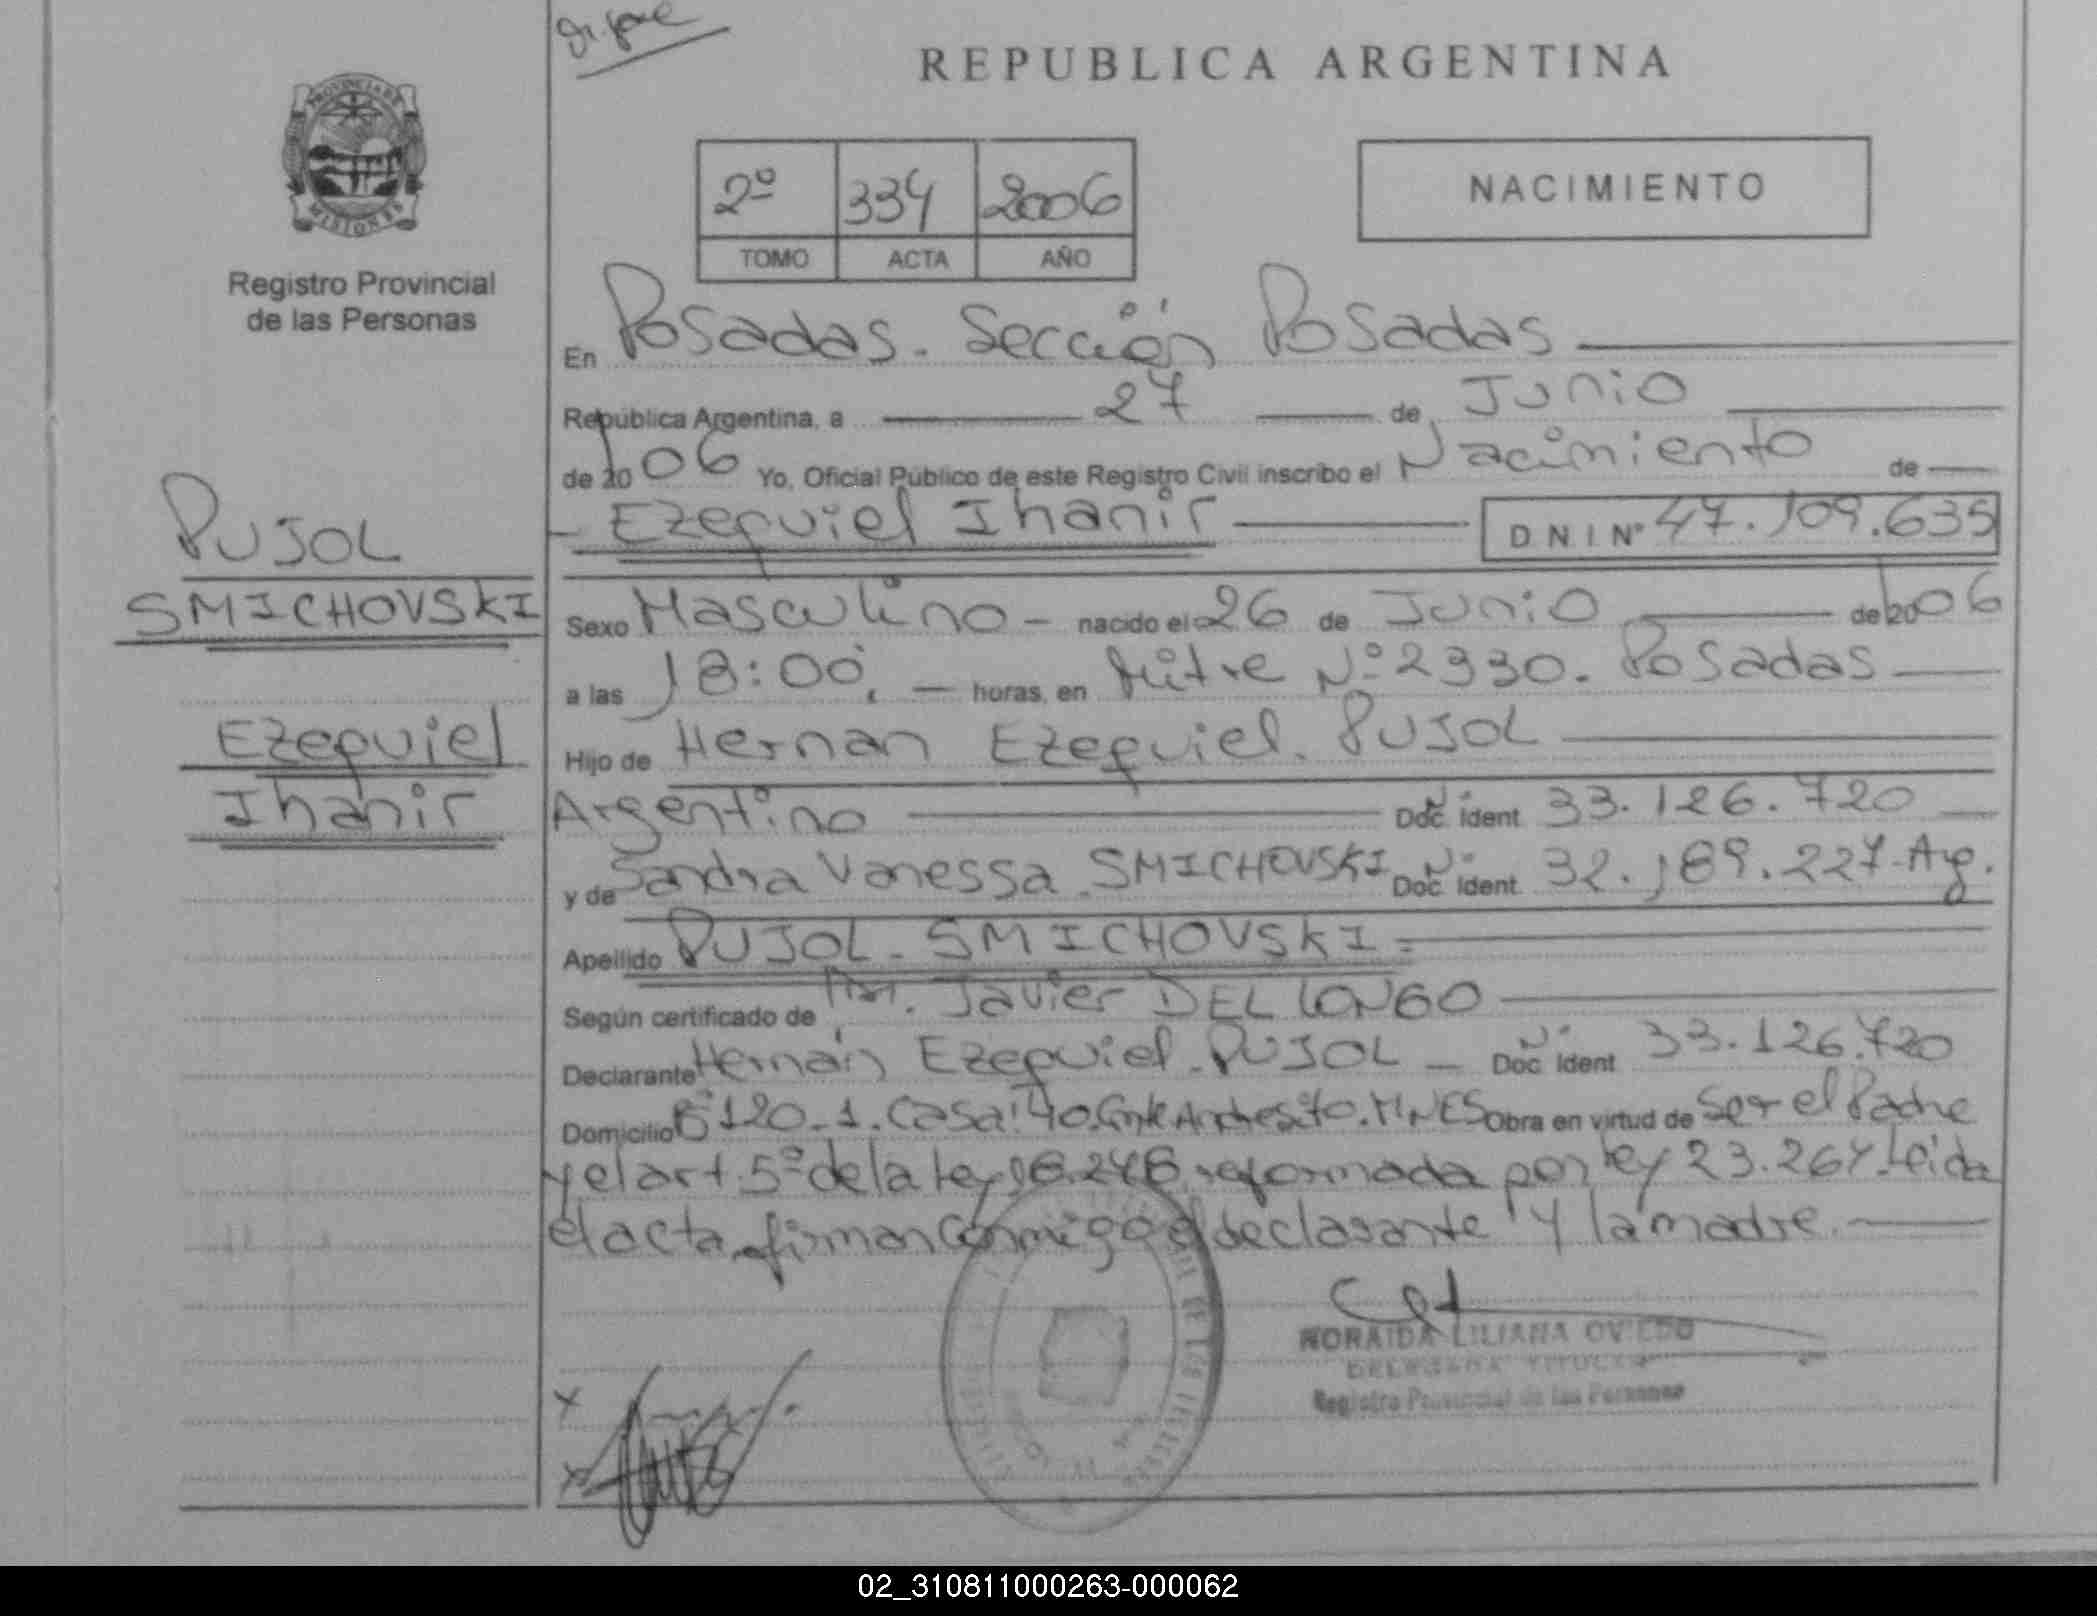 REPUBLICA ARGENTINA
PROVINCIA DE
MISIONES
Registro Provincial
de las Personas
2º 334 2006
TOMO ACTA AÑO
NACIMIENTO
En Posadas. Sección Posadas
República Argentina, a 27 de Junio
de 20 06 Yo, Oficial Público de este Registro Civil inscribo el Nacimiento de
Ezequiel Ihanir D N I Nº 47.109.635
PUJOL
SMICHOVSKI
Ezequiel
Ihanir
Sexo Masculino - nacido el 26 de Junio de 20 06
a las 18:00, horas, en Mitre Nº 2330. Posadas
Hijo de Hernan Ezequiel PUJOL
Argentino Doc. Ident. 33.126.720
y de Sandra Vanessa SMICHOVSKI Doc. Ident. 32.189.227-Arg.
Apellido PUJOL - SMICHOVSKI =
Según certificado de Javier DEL LONGO
Declarante Hernán Ezequiel PUJOL - Doc. Ident. 33.126.720
Domicilio 120-1. Casa: 40. Andresito. MNES Obra en virtud de Ser el Padre
y el art. 5º de la Ley 18.248 reformada por ley 23.264. Leida
el acta, firman conmigo el declarante y la madre.
NORAIDA LILIANA OVIEDO
DELEGADA TITULAR
Registro Provincial de las Personas
02_310811000263-000062